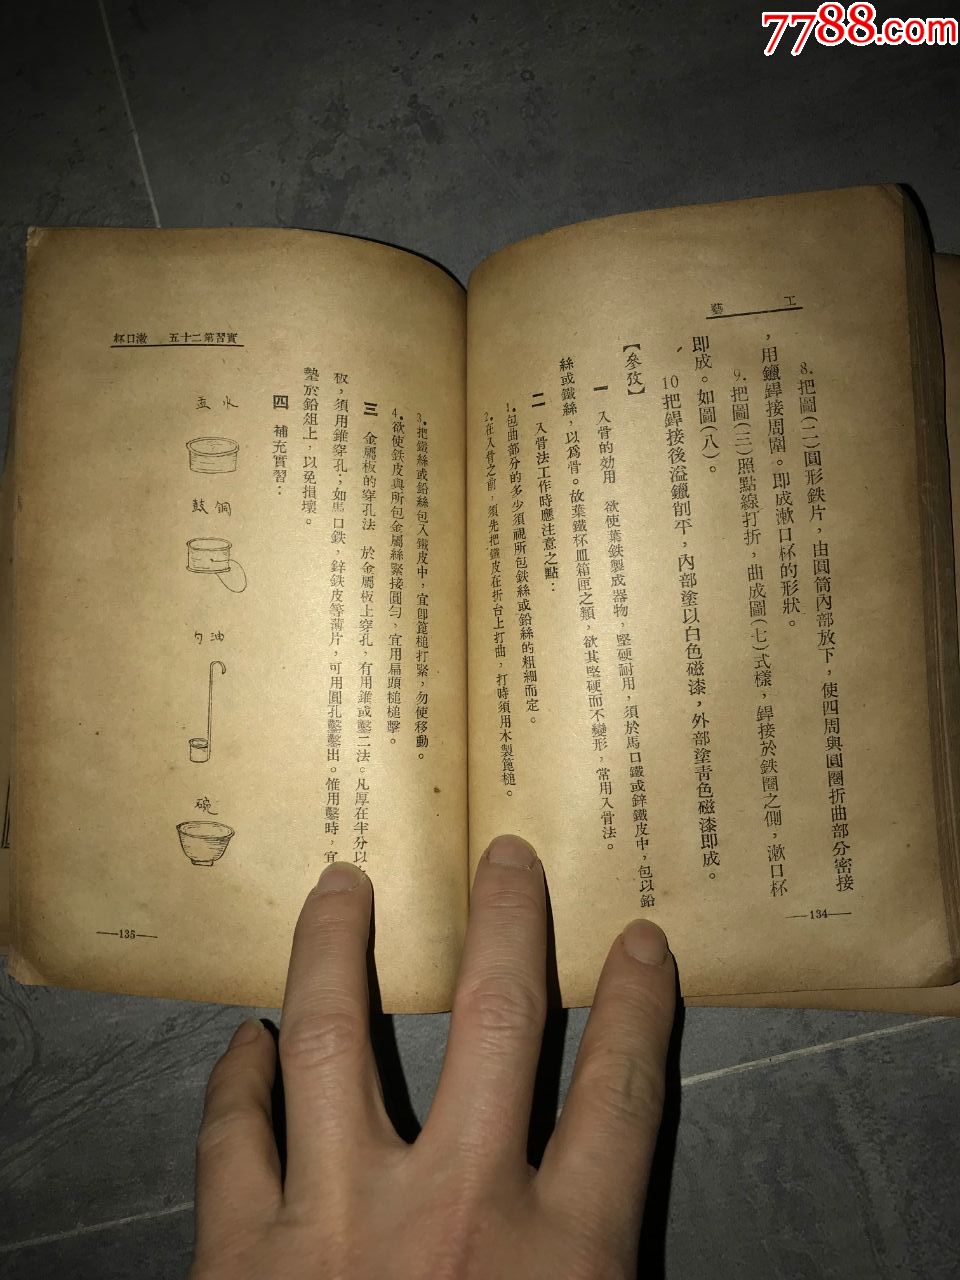 7788.com
工藝
8.把圖(二)圓形鉄片，由圓筒內部放下，使四周與圓圈折曲部分密接
，用鑞銲接周圍。即成漱口杯的形狀。
9.把圖(三)照點線打折，曲成圖(七)式樣，銲接於鉄圈之側，漱口杯
即成。如圖(八)。
10把銲接後溢鑞削平，內部塗以白色磁漆，外部塗靑色磁漆即成。
【參攷】
一 入骨的効用 欲使葉鉄製成器物，堅硬耐用，須於馬口鐵或鋅鐵皮中，包以鉛
絲或鐵絲，以爲骨。故葉鐵杯皿箱匣之類，欲其堅硬而不變形，常用入骨法。
二 入骨法工作時應注意之點：
1.包曲部分的多少須視所包鉄絲或鉛絲的粗細而定。
2.在入骨之前，須先把鐵皮在折台上打曲，打時須用木製箆槌。
—134—
實習第二十五 漱口杯
3.把鐵絲或鉛絲包入鐵皮中，宜卽箆槌打緊，勿使移動。
4.欲使鉄皮與所包金屬絲緊接圓勻，宜用扁頭槌槌擊。
三 金屬板的穿孔法 於金屬板上穿孔，有用錐或鑿二法。凡厚在半分以
板，須用錐穿孔，如馬口鉄，鋅鉄皮等薄片，可用圓孔鑿鑿出。惟用鑿時，宜
墊於鉛俎上，以免損壞。
四 補充實習：
水盂
銅鼓
油勺
碗
—135—